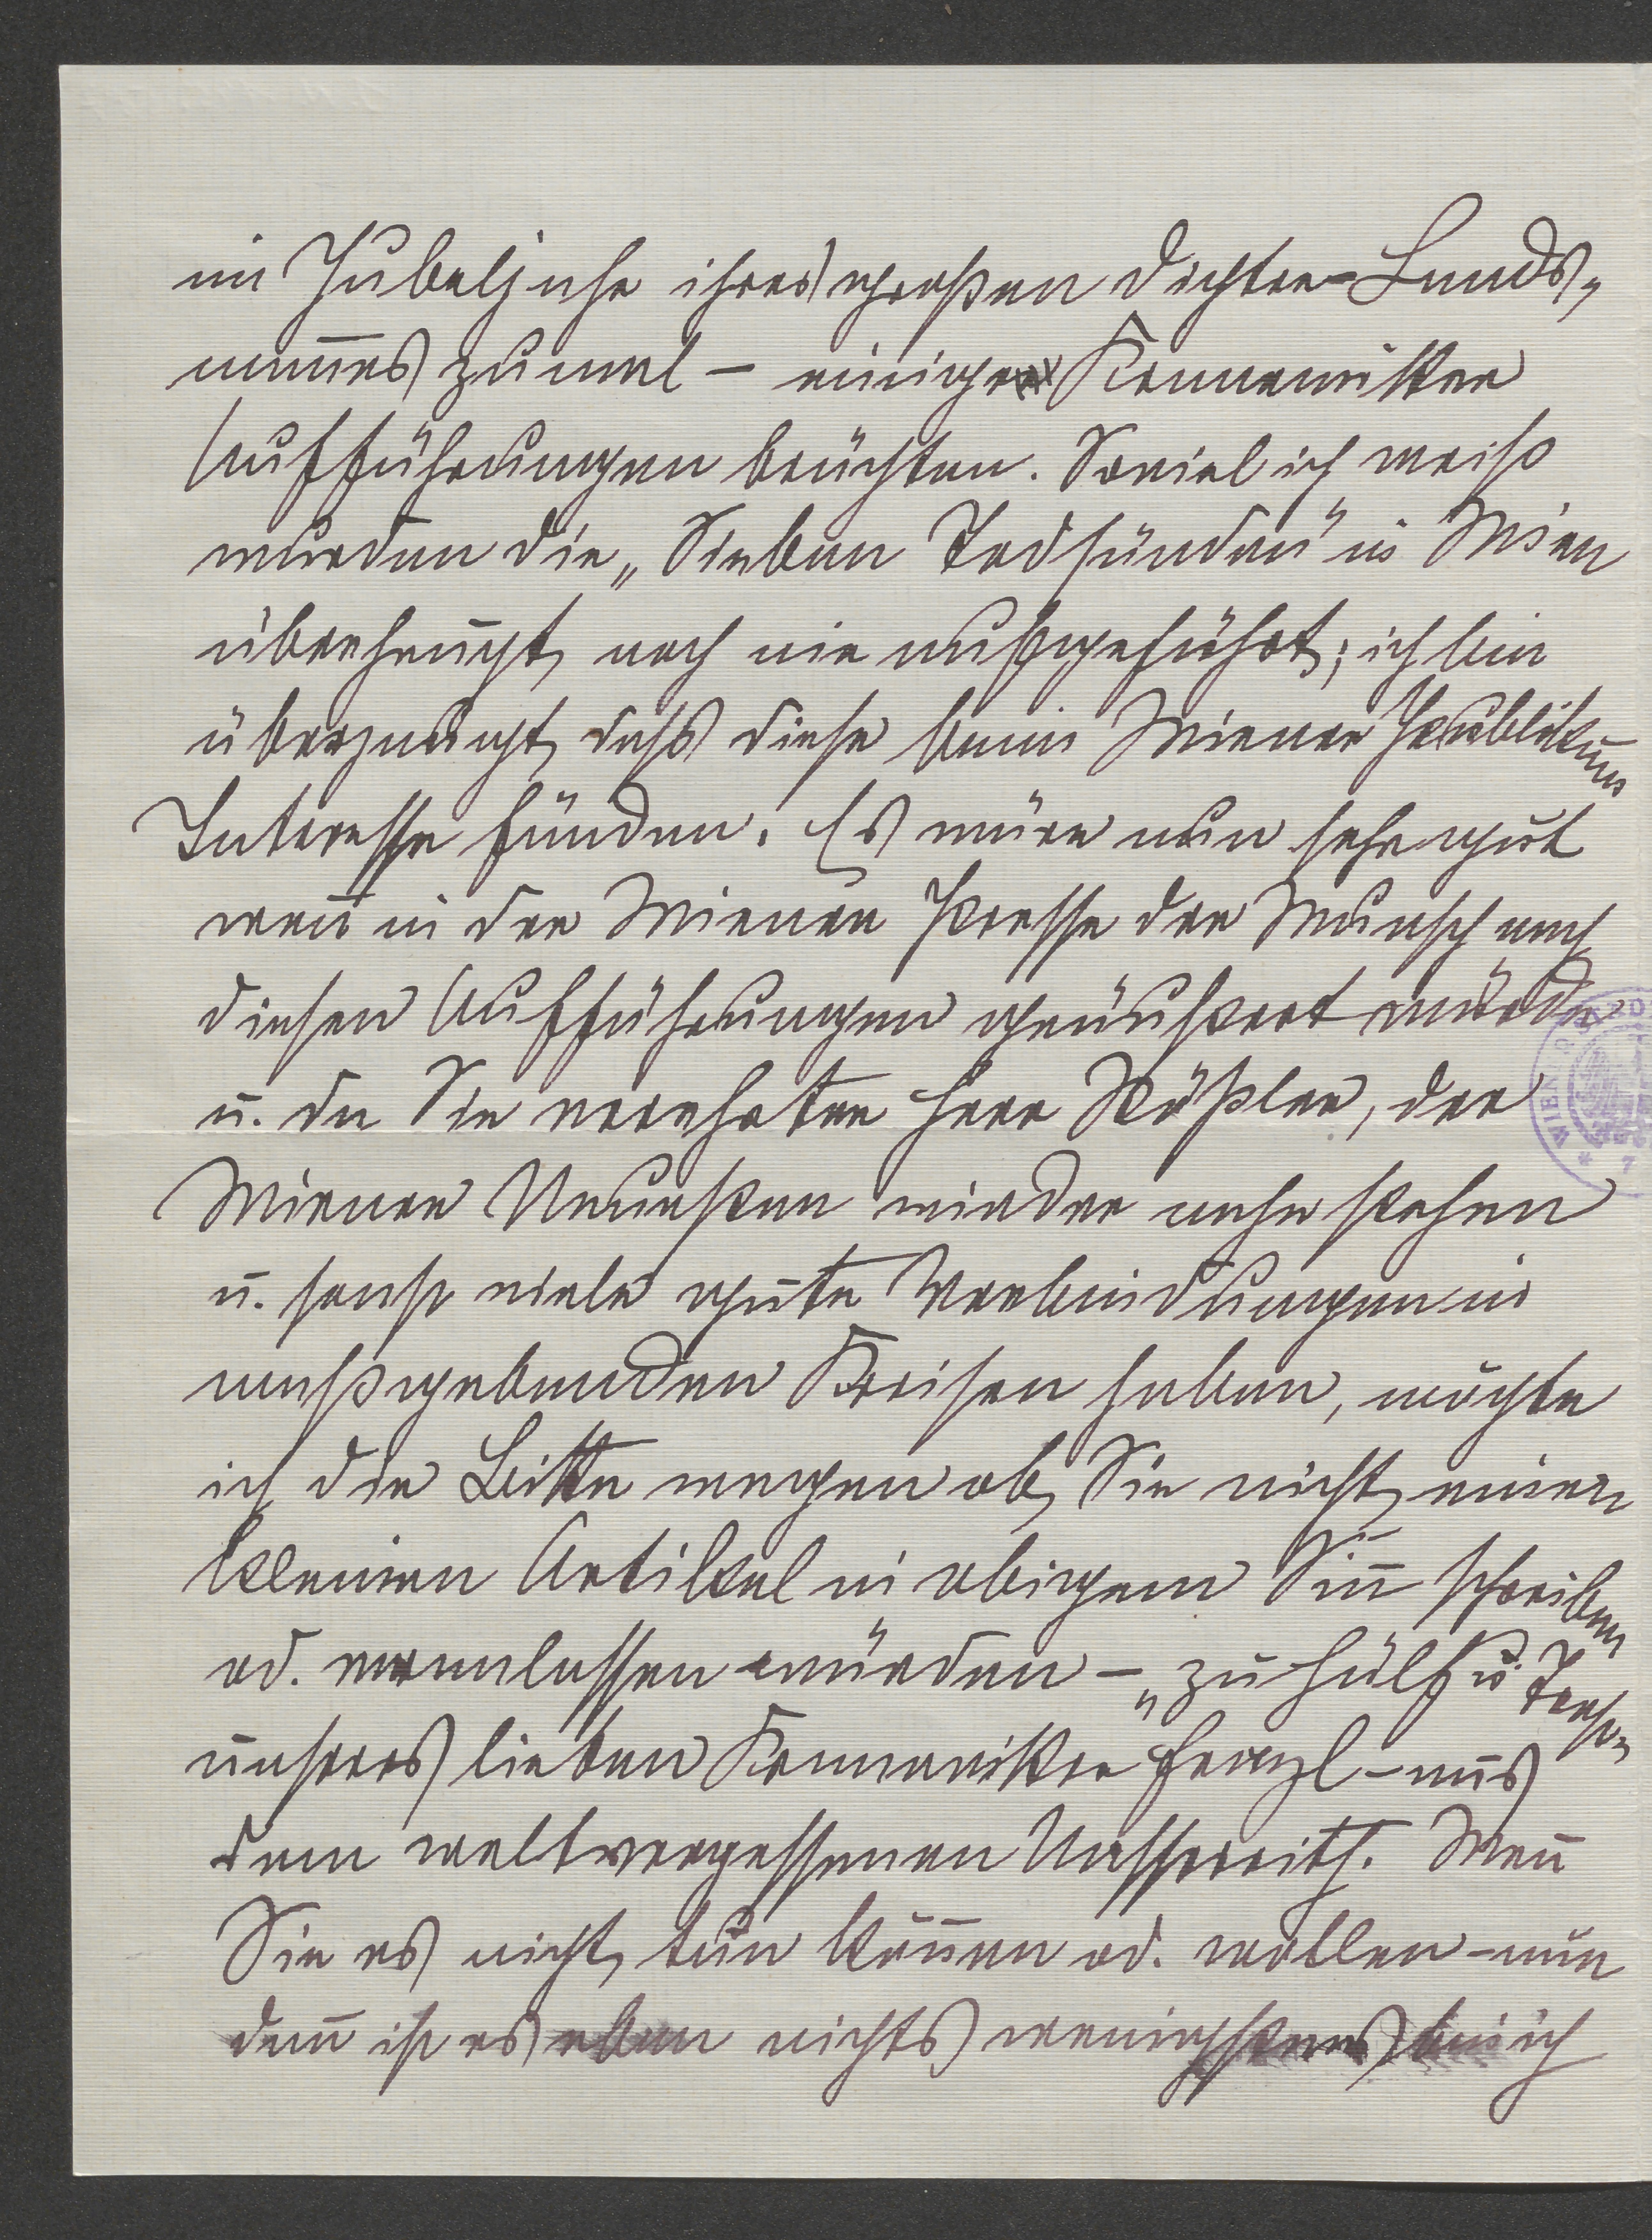 im Jubeljahr ihres großen Dichter-Lands-
mannes zumal – einige Kremmitzer
Aufführungen brächten. Soviel ich weiß
wurden die „Sieben Todsünden" in Wien
überhaupt noch nie aufgeführt; ich bin
überzeugt dass diese beim Wiener Publikum
Interesse fänden. Es wäre nun sehr gut
wen̄ in der Wiener Presse der Wunsch nach
diesen Aufführungen geäußert würde
u. da Sie verehrter Herr Rößler, der
Wiener Neuesten wieder nahe stehen
u. sonst viele gute Verbindungen in
maßgebenden Kreisen haben, möchte
ich die Bitte wagen ob Sie nicht einen
kleinen Artikel in obigem Sin̄ schreiben
od. veranlassen würden – „zu Hülf u. Trost"
unseres lieben Franzl – aus
dem weltvergessenen Nassereith. Wen̄
Sie es nicht tun kön̄en od. wollen – nun
dan̄ ist es eben nichts wenigstens bin ich
WIEN
* 7